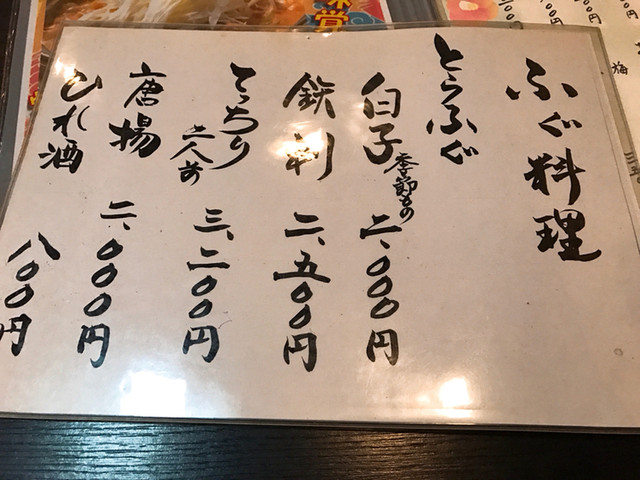 ふぐ料理
とらふぐ
白子 季節もの 二、〇〇〇円
鉄刺 二、五〇〇円
てっちり 一人前 三、二〇〇円
唐揚 二、〇〇〇円
ひれ酒 八〇〇円